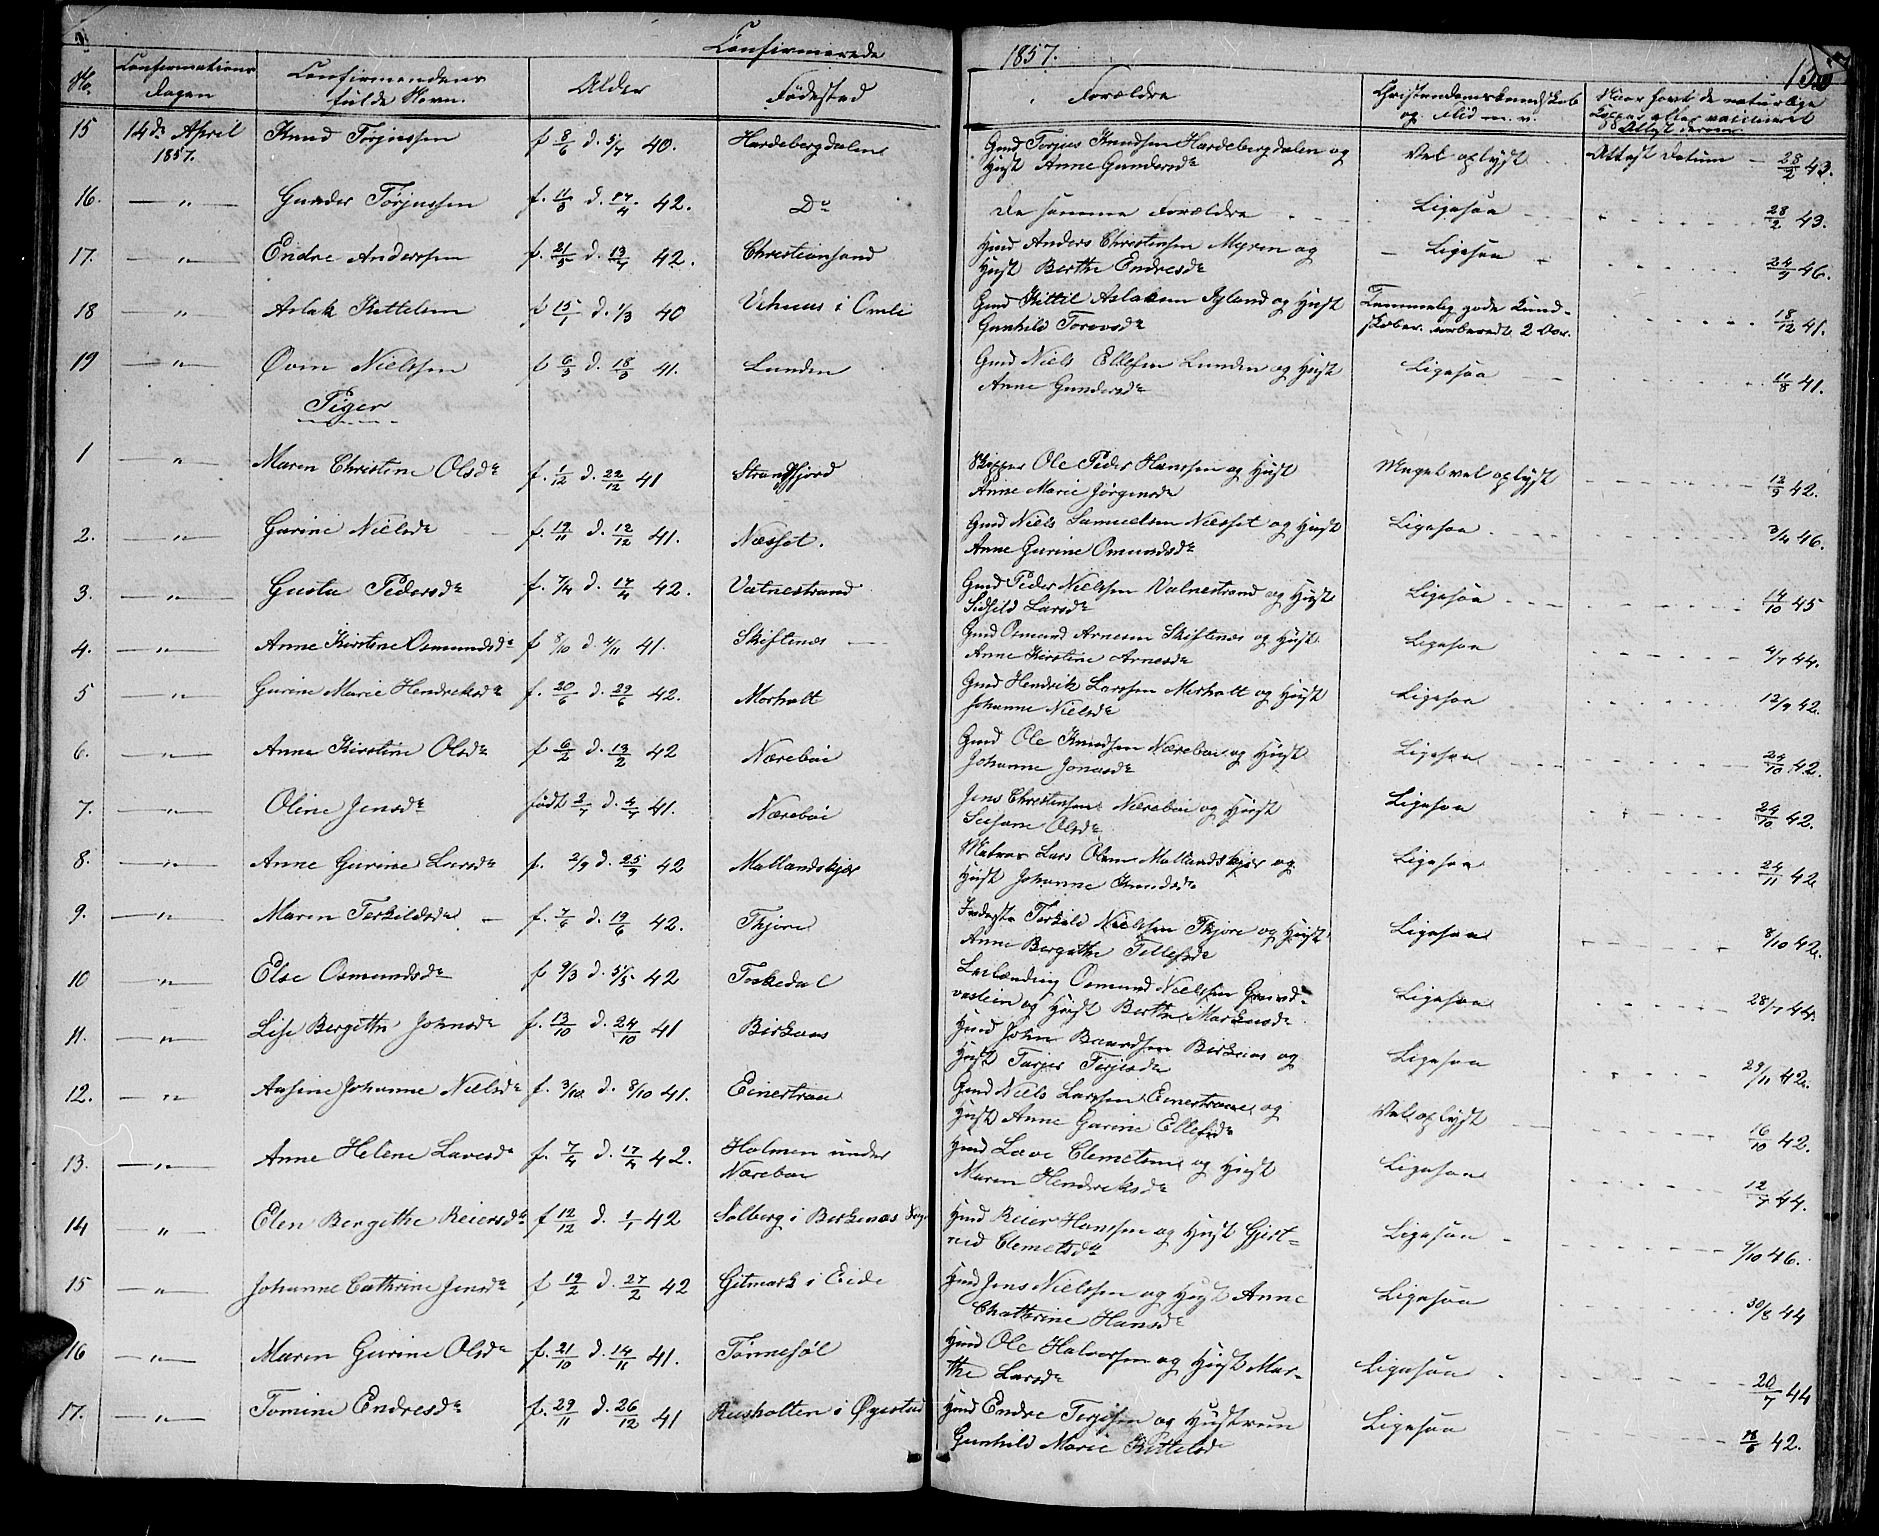 Confirmerede 1857.
No. Confirmations Dagen Confirmandens fulde Navn. Alder Fødested Forældre Christendomskundskab og Flid m. v. Naar havt de naturlige Kopper eller vaccineret Attest derom
15 14de April 1857. Knud Torjussen f 8/6 d. 5/7 40. Hardebergdalen Gmd Torjus Knudsen Hardebergdalen og Hust Anne Gundersdr Vel oplyst Attest Datum 28/2 43.
16. " Gunder Torjussen f. 11/3 d. 17/4 42. Do De samme Forældre Ligesaa 28/2 43.
17. " Endre Anderssen f. 21/5 d. 13/7 42. Christiansand Hmd Anders Christensen Myren og Hust Berthe Endresdr Ligesaa 24/9 46.
18 " Aslak Kittelsen f 15/1 d. 1/3 40 Vehuus i Omli Gmd Kittil Aslaksen Ryland og Hust Gunhild Torovsdr Temmelig gode Kundskaber. forberedt 2 Aar. 18/12 41.
19 " Ovin Nielssen f 6/3 d. 18/3 41. Lunden Gmd Niels Ellefsen Lunden og Hust Anne Gundersdr Ligesaa 11/8 41.
Piger
1 " Maren Christine Olsdr f. 1/12 d. 22/12 41 Strandfjord Skipper Ole Peder Hanssen og Hust Anne Marie Jørgensdr Meget vel oplyst 12/9 42.
2. " Gurine Nielsdr f. 19/11 d. 12/12 41. Næsset. Gmd Niels Samuelsen Næsset og Hust Anne Gurine Omundsdr Ligesaa 3/4 46.
3. " Gusta Pedersdr f. 7/4 d. 17/4 42. Vatnestrand Gmd Peder Nielssen Vatnestrand og Hust Sidsild Larsdr Ligesaa 14/10 45
4. " Anne Kirstine Osmundsdr f 8/10 d 4/11 41. Skiftenæs Gmd Osmund Arnesen Skiftenæs og Hust Anne Kirstine Arnesdr Ligesaa 4/7 44.
5 " Gurine Marie Hendriksdr f. 20/6 d. 29/6 42. Morholt Gmd Hendrik Larssen Morholt og Hust Johanne Nielsdr Ligesaa 12/9 42.
6. " Anne Kirstine Olsdr f 6/2 d. 13/2 42 Nærebøe Gmd Ole Knudsen Nærebøe og Hust Johanne Jonasdr Ligesaa 24/10 42.
7. " Oline Jensdr født 2/7 d. 4/7 41. Nærebøe Jens Christensen Nærebøe og Hust Susane Olsdr Ligesaa 24/10 42.
8. " Anne Gurine Larsdr f. 2/9 d. 25/9 42 Mallandskjær Matros Lars Olsen Mallandskjær og Hust Johanne Knudsdr Ligesaa 24/11 42
9. " Maren Terkildsdr f. 7/6 d. 19/6 42. Thjøre Inderste Terkild Nielssen Thjøre og Hust Anne Bergithe Tellefsdr Ligesaa 8/10 42.
10 " Else Osmundsdr f 9/3 d. 5/5 42 Toskedal Leilænding Osmund Nielssen Grundvastein og Hust Berthe Markusdr Ligesaa 28/7 44.
11. " Lise Bergithe Johnsdr f. 13/10 d. 24/10 41 Birkeaas Hmd John Baardsen Birkeaas og Hust Tarjer Terjesdr Ligesaa 29/11 42.
12. " Aasine Johanne Nielsdr f. 3/10 d. 8/10 41. Einerstraae Gmd Niels Larssen Einerstraae og Hust Anne Gurine Ellefsdr Vel oplyst 16/10 42.
13. " Anne Helene Lavesdr f. 7/4 d. 17/4 42. Holmen under Nærebøe Hmd Lave Clemetsen og Hust Maren Hendriksdr Ligesaa 12/7 44.
14 " Elen Bergithe Reiersdr f 12/12 d. 1/1 42 Solberg i Birkenæs Sogn Hmd Reier Hanssen og Hust Gjertrud Clemetsdr Ligesaa 9/10 46.
15 " Johanne Cathrine Jensdr f 19/2 d. 27/2 42 Gitmark i Eide Hmd Jens Nielssen og Hust Anne Chatherine Hansdr Ligesaa 30/8 44
16 " Maren Gurine Olsdr f. 21/10 d. 14/11 41. Tønnesøl Hmd Ole Halvorsen og Hust Marthe Larsdr Ligesaa 20/7 44
17. " Tomine Endresdr f. 29/11 d. 26/12 41 Rusholten i Øyestad Hmd Endre Terjesen og Hustruen Gunhild Marie Kittelsdr Ligesaa 18/6 42.